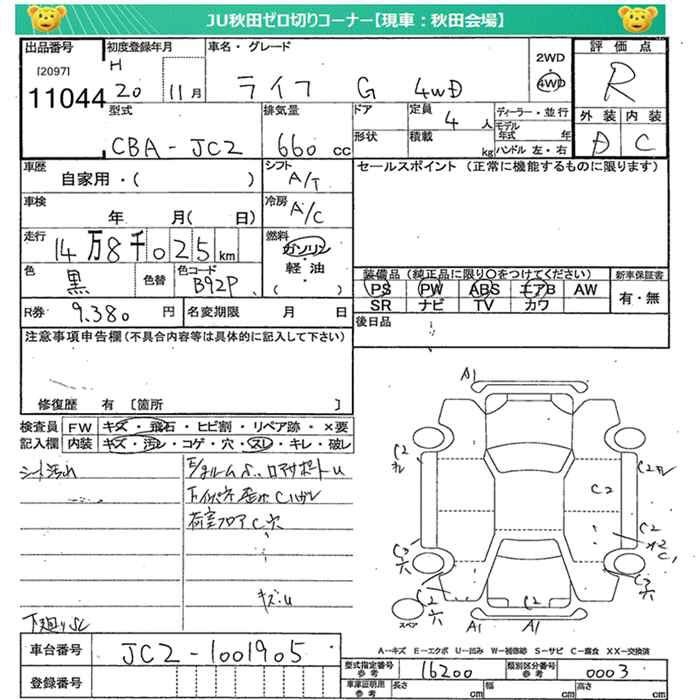 JU秋田ゼロ切りコーナー【現車：秋田会場】
出品番号 初度登録年月 車名・グレード 2WD 評価点
[2097] H 20 11月 ライフ G 4WD ・ 4WD R
11044
型式 排気量 ドア 定員 4 人 ディーラー・並行 外装 内装
モデル年式 年
CBA-JC2 660 cc 形状 積載 kg ハンドル 左・右 D C
車歴 シフト セールスポイント（正常に機能するものに限ります）
自家用・（ ） A/T
車検 冷房
年 月（ 日） A/C
走行 燃料
14万8千025km ガソリン
色 色替 色コード 軽・油 装備品（純正品に限り○をつけてください） 新車保証書
黒 B92P （ ） PS PW ABS エアB AW 有・無
SR ナビ TV カワ
R券 9.380 円 名変期限 月 日 後日品
注意事項申告欄（不具合内容等は具体的に記入して下さい）
修復歴 有 [箇所 ]
検査員 FW キズ・飛石・ヒビ割・リペア跡・×要
記入欄 内装 キズ・汚レ・コゲ・穴・スレ・キレ・破レ
A1
C2
C2
C2
C2
A1 A1
スペア
キズ・U
下廻りSC
A-キズ E-エクボ U-凹み W-補修跡 S-サビ C-腐食 XX-交換済
車台番号 JC2-1001905
型式指定番号 参考 16200 類別区分番号 参考 0003
登録番号 車庫証明用 参考 長さ cm 幅 cm 高さ cm